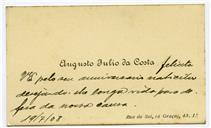 Augusto Julio da Costa felicita
V. Ex.ª pelo seu anniversario natalicio
desejando-lhe longa vida para de-
feza da nossa causa.
19/7/08
Rua do Sol, (á Graça), 43, 1.º